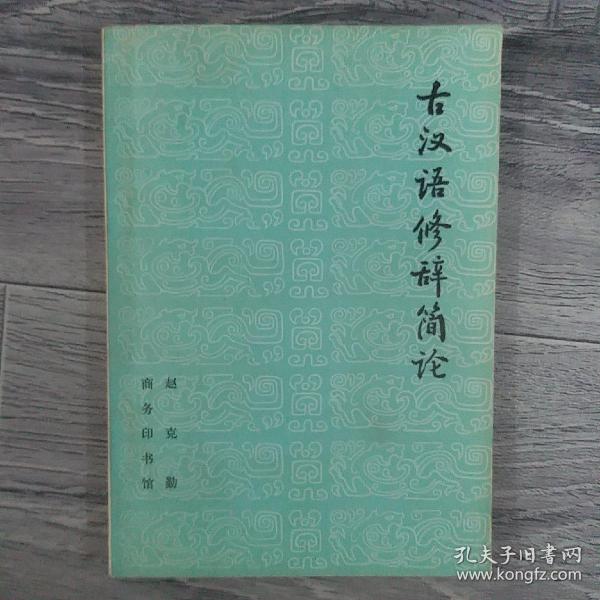 古汉语修辞简论
赵克勤
商务印书馆
孔夫子旧书网
www.kongfz.com